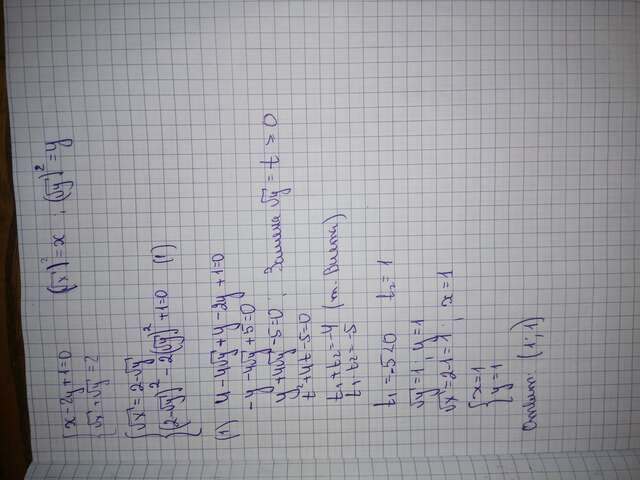 { x - 2y + 1 = 0 (√x)² = x ; (√y)² = y
{ √x + √y = 2
{ √x = 2 - √y
{ (2-√y)² - 2(√y)² + 1 = 0 (1)
(1) 4 - 4√y + y - 2y + 1 = 0
-y - 4√y + 5 = 0
y + 4√y - 5 = 0 ; Замена √y = t ≥ 0
t² + 4t - 5 = 0
t₁ + t₂ = -4 (т. Виета)
t₁ · t₂ = -5
t₁ = -5 < 0 t₂ = 1
√y = 1 ; y = 1
√x = 2-1 = 1 ; x = 1
{ x = 1
{ y = 1
Ответ: (1; 1)